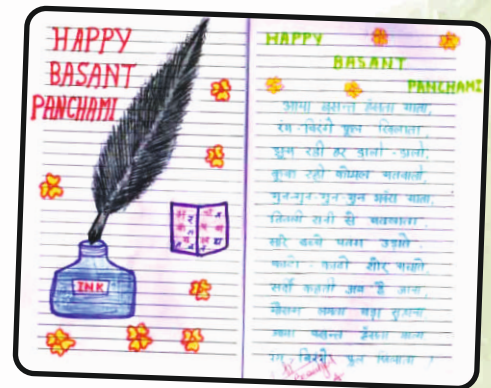 HAPPY
BASANT
PANCHAMI
INK
HAPPY
BASANT
PANCHAMI
आया बसन्त हँसता गाता,
रंग-बिरंगे फूल खिलाता,
झूम रही हर डाली-डाली,
कूक रही कोयल मतवाली,
गुन-गुन-गुन-गुन भंवरा गाता,
तितली रानी से
सारे बच्चे पतंग उड़ाते,
काटो-काटो शोर मचाते,
सर्दी कहती अब है जाना,
मौसम लगता बड़ा सुहाना
आया बसन्त हँसता गाता
रंग बिरंगे फूल खिलाता !